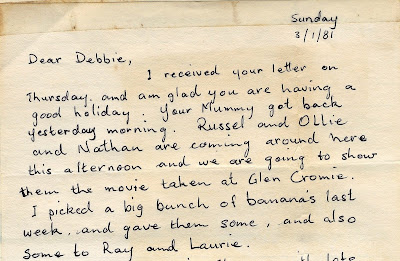 Sunday
3/1/81
Dear Debbie,
I received your letter on
Thursday, and am glad you are having a
good holiday. Your Mummy got back
yesterday morning. Russel and Ollie
and Nathan are coming around here
this afternoon and we are going to show
them the movie taken at Glen Cromie.
I picked a big bunch of banana's last
week, and gave them some, and also
some to Ray and Laurie.